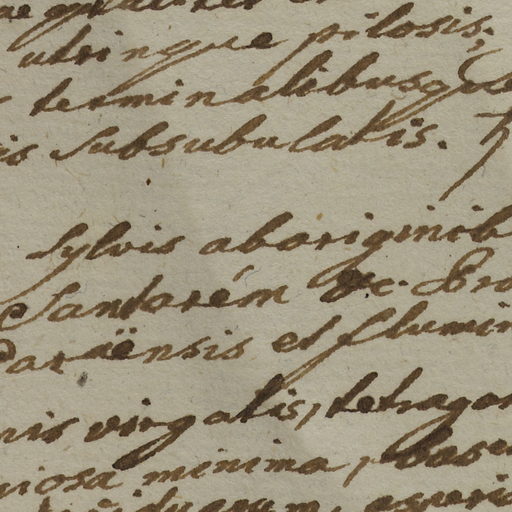 utrinque pilosis;
terminalibusque
is subsubulatis. ♄
Sylvis aboriginib
Santarém &c. Pro
Paraënsis et flumin
nis virgatis, tetragon
minima, base